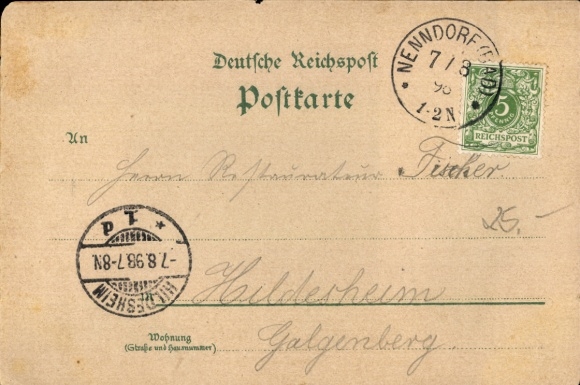 Deutsche Reichspost
Postkarte
NENNDORF (BAD)
7/8
98
1-2N
5
PFENNIG
REICHSPOST
An
Herrn Restaurateur Fischer
25.-
* 1 d
-7.8.98.7-8N.
HILDESHEIM
in
Hildesheim
Galgenberg.
Wohnung
(Straße und Hausnummer)